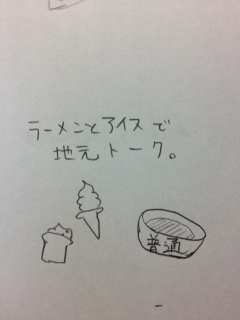 ラーメンとアイスで
地元トーク。
普通